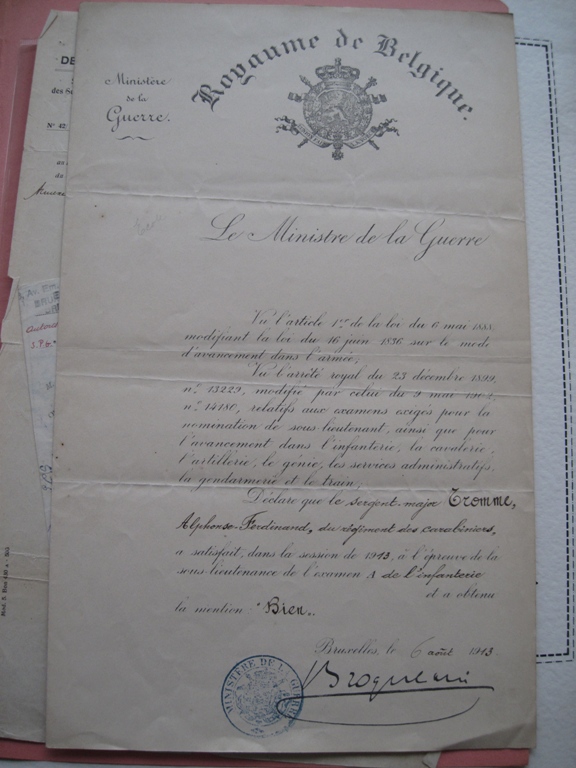 Royaume de Belgique.
Ministère
de la
Guerre.
Le Ministre de la Guerre
Vu l'article 1er de la loi du 6 mai 1888
modifiant la loi du 16 juin 1836 sur le mode
d'avancement dans l'armée;
Vu l'arrêté royal du 23 décembre 1899,
n.° 13229, modifié par celui du 9 mai 1902,
n.° 14180, relatifs aux examens exigés pour la
nomination de sous-lieutenant, ainsi que pour
l'avancement dans l'infanterie, la cavalerie,
l'artillerie, le génie, les services administratifs,
la gendarmerie et le train;
Déclare que le sergent-major Tromme,
Alphonse-Ferdinand, du régiment des carabiniers,
a satisfait, dans la session de 1913, à l'épreuve de la
sous-lieutenance de l'examen A de l'infanterie
et a obtenu
la mention: "Bien".
Bruxelles, le 6 août 1913
Broqueville
MINISTÈRE DE LA GUERRE
DE
des Se
N° 42
au
du